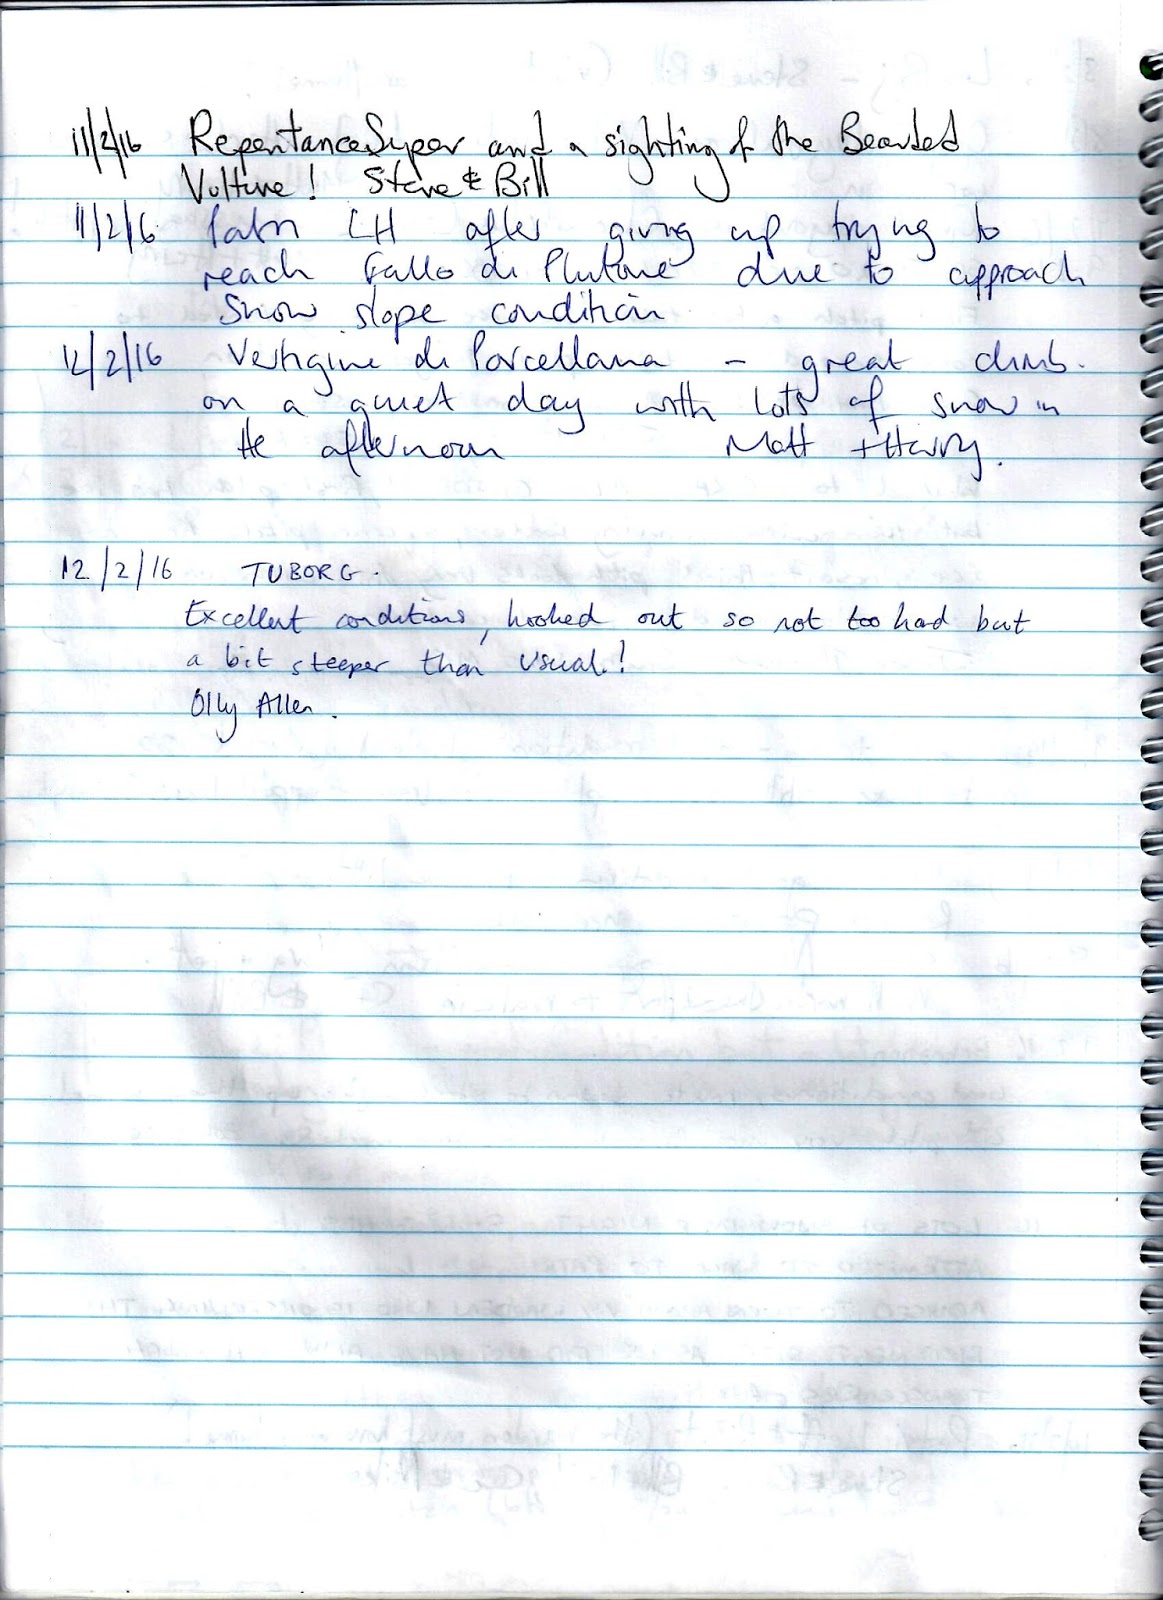 11/2/16 Repentance Super and a sighting of the Bearded
Vulture! Steve & Bill
11/2/16 Patri LH after giving up trying to
reach Fallo di Plutone due to approach
Snow slope condition
12/2/16 Vertigine di Porcellana - great climb.
on a quiet day with lots of snow in
the afternoon Matt + Harry.
12/2/16 TUBORG.
Excellent conditions, hooked out so not too hard but
a bit steeper than usual!
Olly Allen.